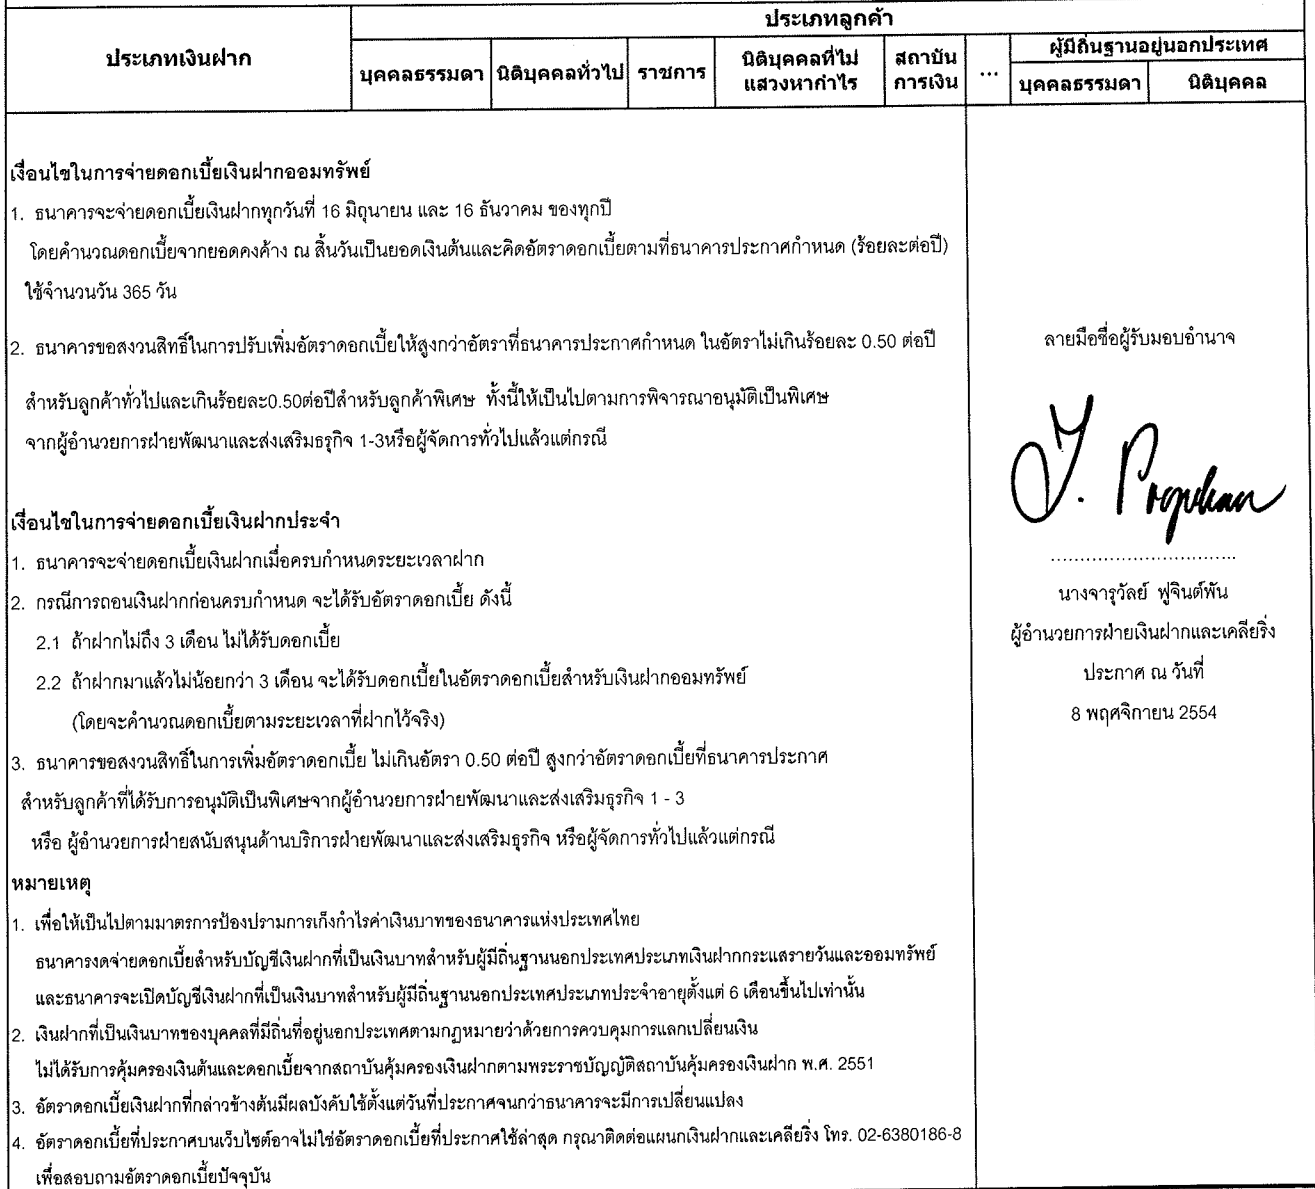 ประเภทเงินฝาก
ประเภทลูกค้า
บุคคลธรรมดา
นิติบุคคลทั่วไป
ราชการ
นิติบุคคลที่ไม่
แสวงหากำไร
สถาบัน
การเงิน
...
ผู้มีถิ่นฐานอยู่นอกประเทศ
บุคคลธรรมดา
นิติบุคคล
เงื่อนไขในการจ่ายดอกเบี้ยเงินฝากออมทรัพย์
1. ธนาคารจะจ่ายดอกเบี้ยเงินฝากทุกวันที่ 16 มิถุนายน และ 16 ธันวาคม ของทุกปี
โดยคำนวณดอกเบี้ยจากยอดคงค้าง ณ สิ้นวันเป็นยอดเงินต้นและคิดอัตราดอกเบี้ยตามที่ธนาคารประกาศกำหนด (ร้อยละต่อปี)
ใช้จำนวนวัน 365 วัน
2. ธนาคารขอสงวนสิทธิ์ในการปรับเพิ่มอัตราดอกเบี้ยให้สูงกว่าอัตราที่ธนาคารประกาศกำหนด ในอัตราไม่เกินร้อยละ 0.50 ต่อปี
สำหรับลูกค้าทั่วไปและเกินร้อยละ0.50ต่อปีสำหรับลูกค้าพิเศษ ทั้งนี้ให้เป็นไปตามการพิจารณาอนุมัติเป็นพิเศษ
จากผู้อำนวยการฝ่ายพัฒนาและส่งเสริมธรุกิจ 1-3หรือผู้จัดการทั่วไปแล้วแต่กรณี
เงื่อนไขในการจ่ายดอกเบี้ยเงินฝากประจำ
1. ธนาคารจะจ่ายดอกเบี้ยเงินฝากเมื่อครบกำหนดระยะเวลาฝาก
2. กรณีการถอนเงินฝากก่อนครบกำหนด จะได้รับอัตราดอกเบี้ย ดังนี้
2.1 ถ้าฝากไม่ถึง 3 เดือน ไม่ได้รับดอกเบี้ย
2.2 ถ้าฝากมาแล้วไม่น้อยกว่า 3 เดือน จะได้รับดอกเบี้ยในอัตราดอกเบี้ยสำหรับเงินฝากออมทรัพย์
(โดยจะคำนวณดอกเบี้ยตามระยะเวลาที่ฝากไว้จริง)
3. ธนาคารขอสงวนสิทธิ์ในการเพิ่มอัตราดอกเบี้ย ไม่เกินอัตรา 0.50 ต่อปี สูงกว่าอัตราดอกเบี้ยที่ธนาคารประกาศ
สำหรับลูกค้าที่ได้รับการอนุมัติเป็นพิเศษจากผู้อำนวยการฝ่ายพัฒนาและส่งเสริมธุรกิจ 1 - 3
หรือ ผู้อำนวยการฝ่ายสนับสนุนด้านบริการฝ่ายพัฒนาและส่งเสริมธุรกิจ หรือผู้จัดการทั่วไปแล้วแต่กรณี
หมายเหตุ
1. เพื่อให้เป็นไปตามมาตรการป้องปรามการเก็งกำไรค่าเงินบาทของธนาคารแห่งประเทศไทย
ธนาคารงดจ่ายดอกเบี้ยสำหรับบัญชีเงินฝากที่เป็นเงินบาทสำหรับผู้มีถิ่นฐานนอกประเทศประเภทเงินฝากกระแสรายวันและออมทรัพย์
และธนาคารจะเปิดบัญชีเงินฝากที่เป็นเงินบาทสำหรับผู้มีถิ่นฐานนอกประเทศประเภทประจำอายุตั้งแต่ 6 เดือนขึ้นไปเท่านั้น
2. เงินฝากที่เป็นเงินบาทของบุคคลที่มีถิ่นที่อยู่นอกประเทศตามกฎหมายว่าด้วยการควบคุมการแลกเปลี่ยนเงิน
ไม่ได้รับการคุ้มครองเงินต้นและดอกเบี้ยจากสถาบันคุ้มครองเงินฝากตามพระราชบัญญัติสถาบันคุ้มครองเงินฝาก พ.ศ. 2551
3. อัตราดอกเบี้ยเงินฝากที่กล่าวข้างต้นมีผลบังคับใช้ตั้งแต่วันที่ประกาศจนกว่าธนาคารจะมีการเปลี่ยนแปลง
4. อัตราดอกเบี้ยที่ประกาศบนเว็บไซต์อาจไม่ใช่อัตราดอกเบี้ยที่ประกาศใช้ล่าสุด กรุณาติดต่อแผนกเงินฝากและเคลียริ่ง โทร. 02-6380186-8
เพื่อสอบถามอัตราดอกเบี้ยปัจจุบัน
ลายมือชื่อผู้รับมอบอำนาจ
................................
นางจารุวัลย์ ฟูจินต์พัน
ผู้อำนวยการฝ่ายเงินฝากและเคลียริ่ง
ประกาศ ณ วันที่
8 พฤศจิกายน 2554